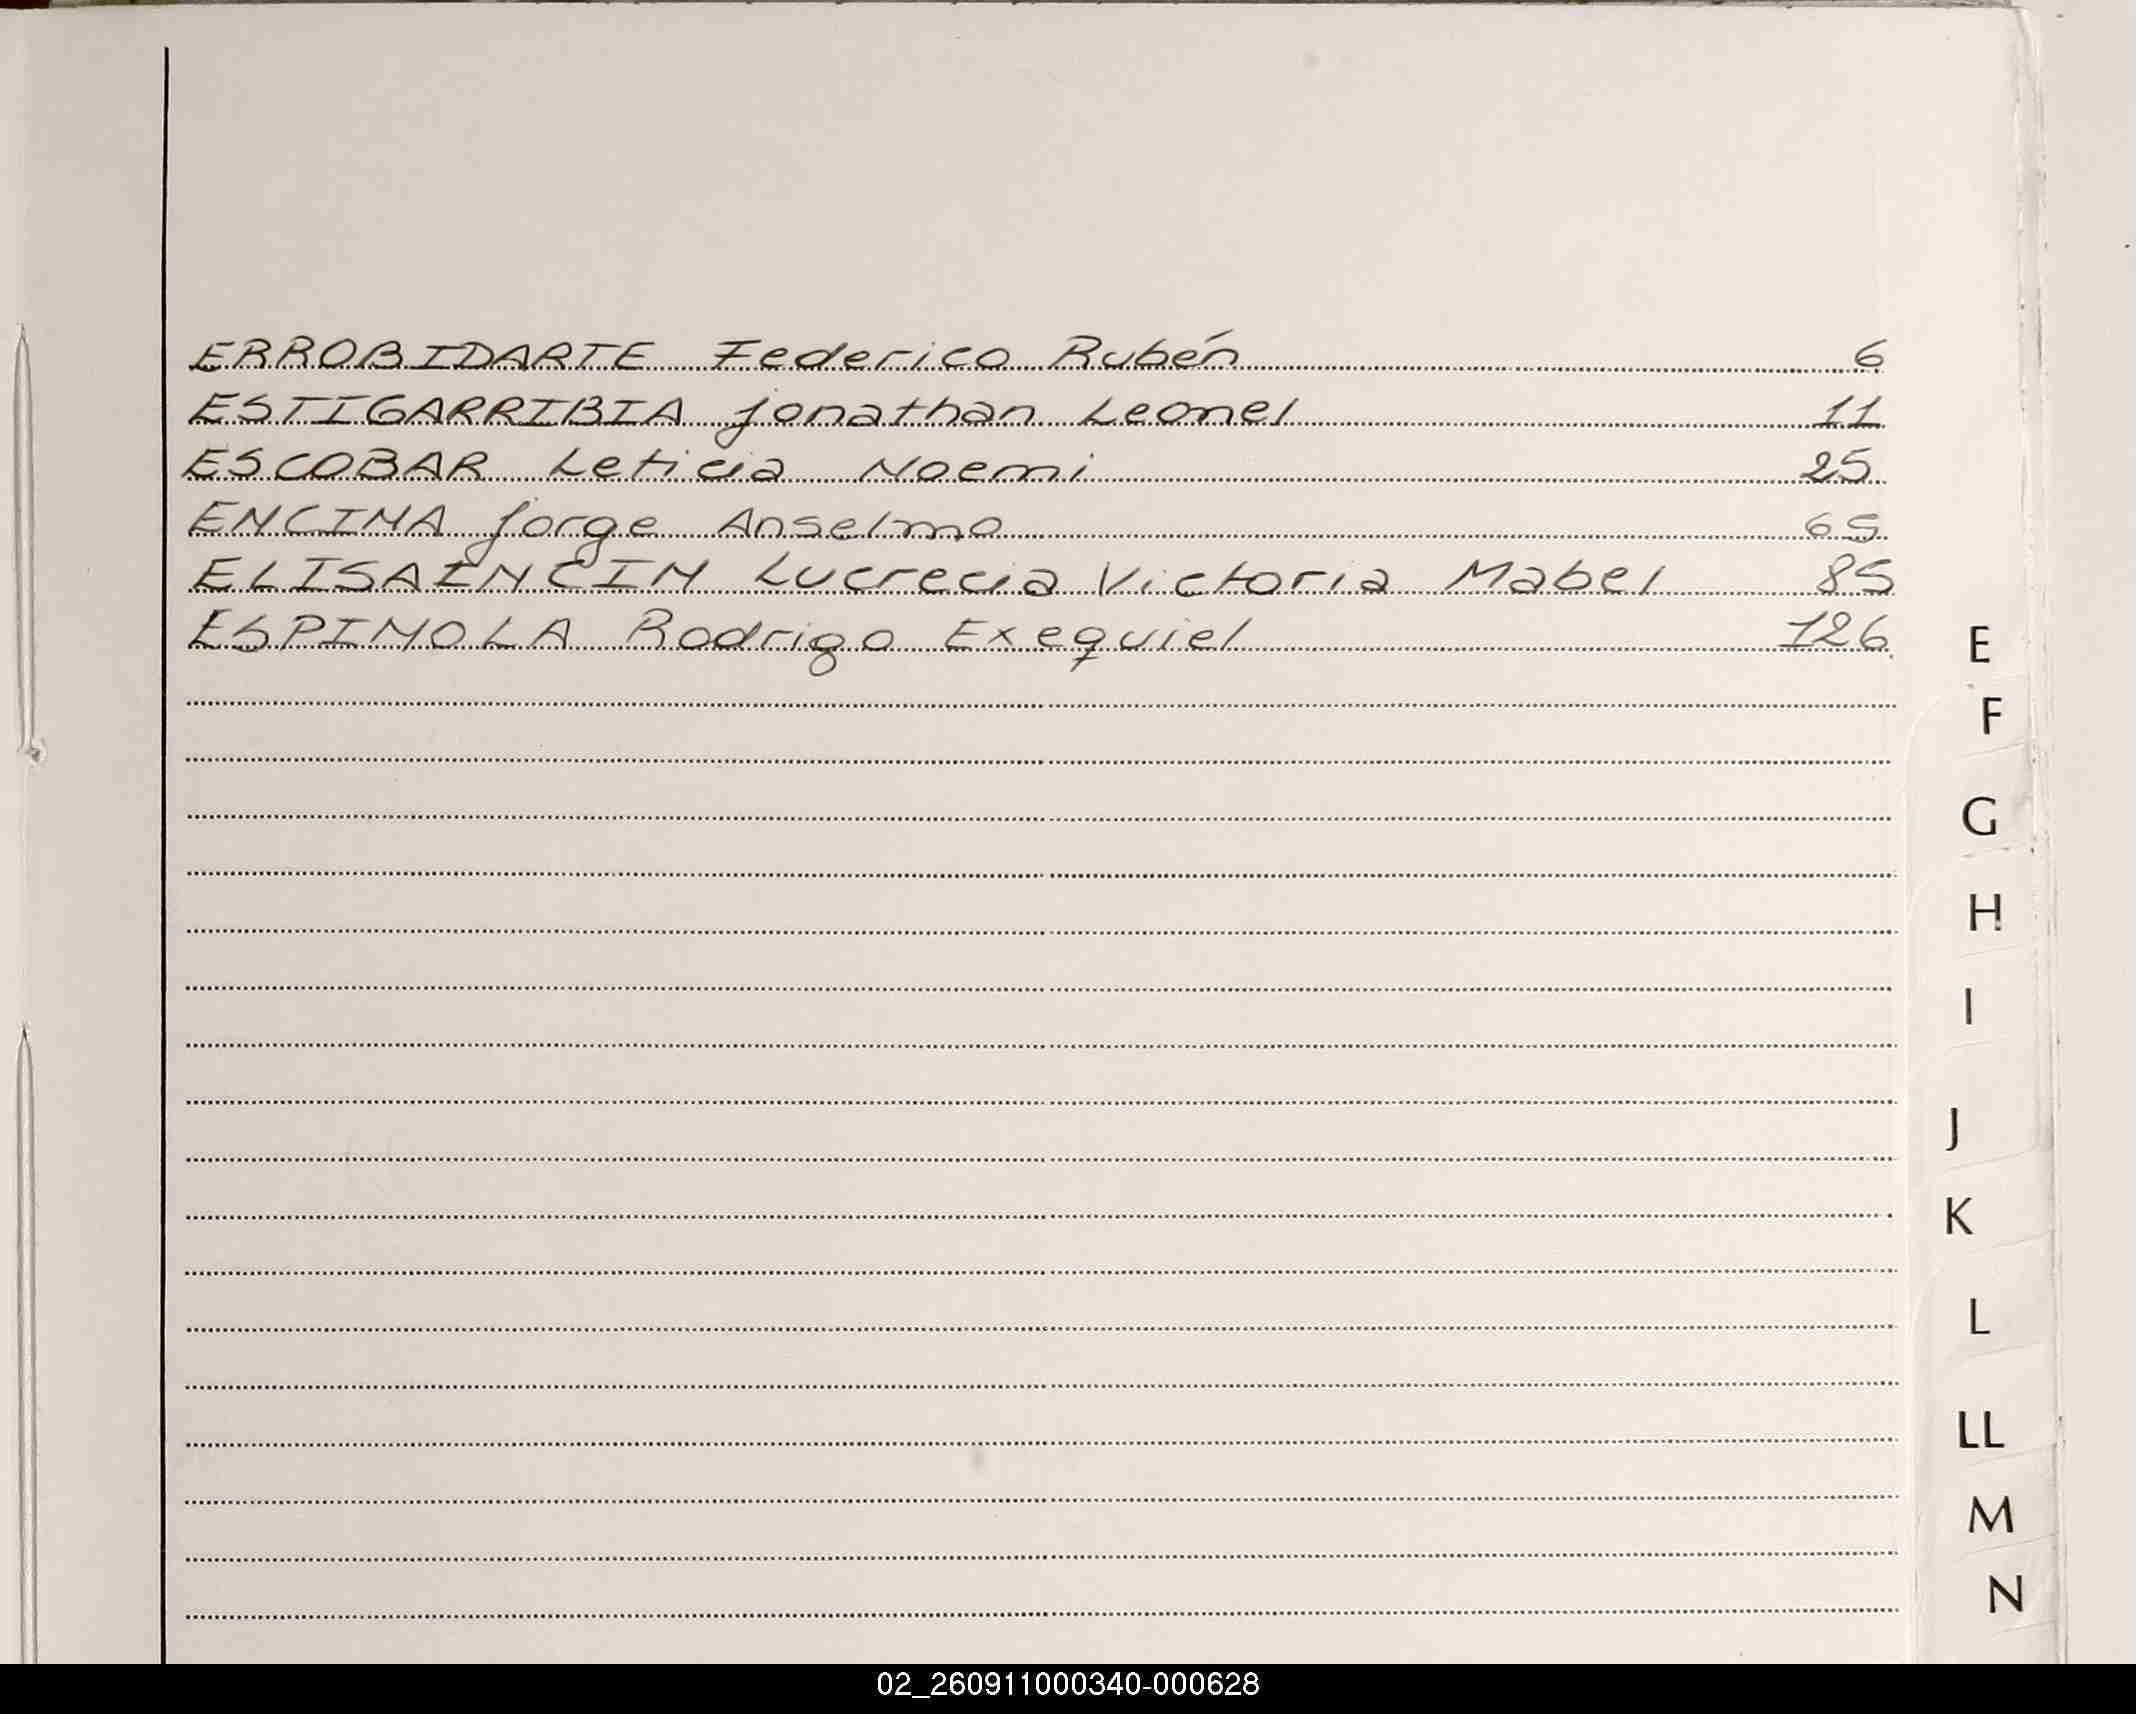 ERROBIDARTE Federico Rubén 6
ESTIGARRIBIA Jonathan Leonel 11
ESCOBAR Leticia Noemi 25
ENCINA Jorge Anselmo 65
ELISAINCIN Lucrecia Victoria Mabel 85
ESPINOLA Rodrigo Exequiel 126
E
F
G
H
I
J
K
L
LL
M
N
02_260911000340-000628